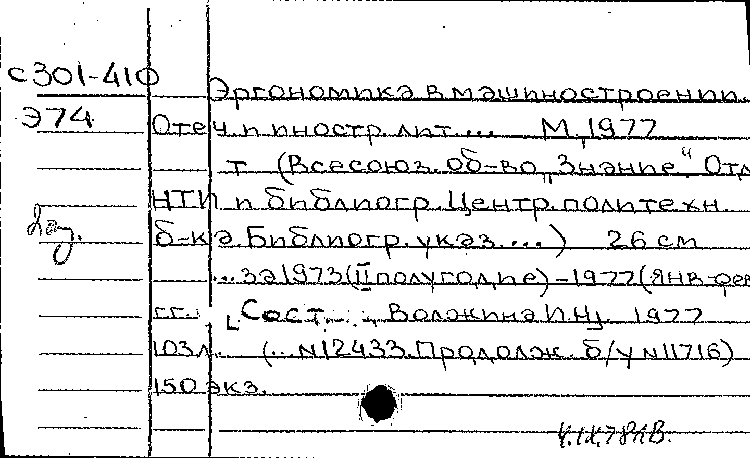 с301-410
Эргономика в машиностроении.
Э74
Отеч. и иностр. лит.... М., 1977
т (Всесоюз. об-во „Знание“ Отд.
НТИ и библиогр. Центр. политехн.
б-ка. Библиогр. указ....) 26 см
...за 1973 (II полугодие) - 1977 (янв-фев
гг. [Сост. ... Волжина И.Н]. 1977
103 л. (... N12433. Продолж. б/у N11716)
150 экз.